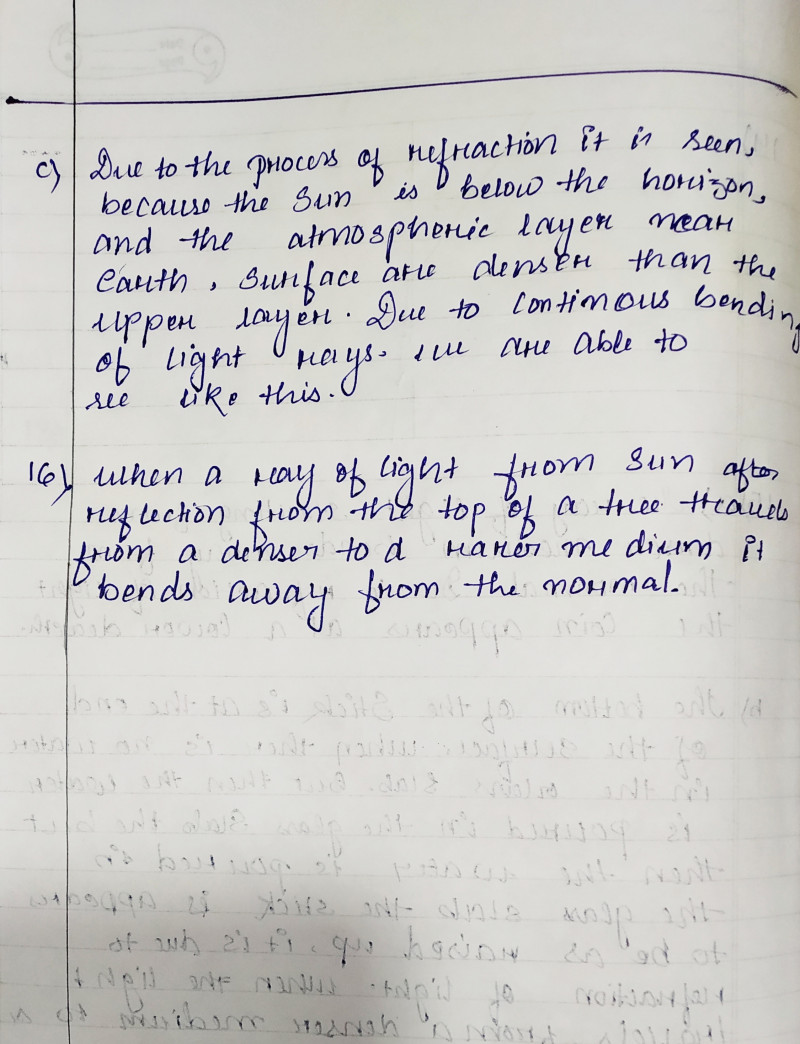 c) Due to the process of refraction it is seen,
because the sun is below the horizon,
and the atmospheric layer near
earth, surface are denser than the
upper layer. Due to continous bending
of light rays. we are able to
see like this.
16) when a ray of light from sun after
reflection from the top of a tree travels
from a denser to a rarer medium it
bends away from the normal.